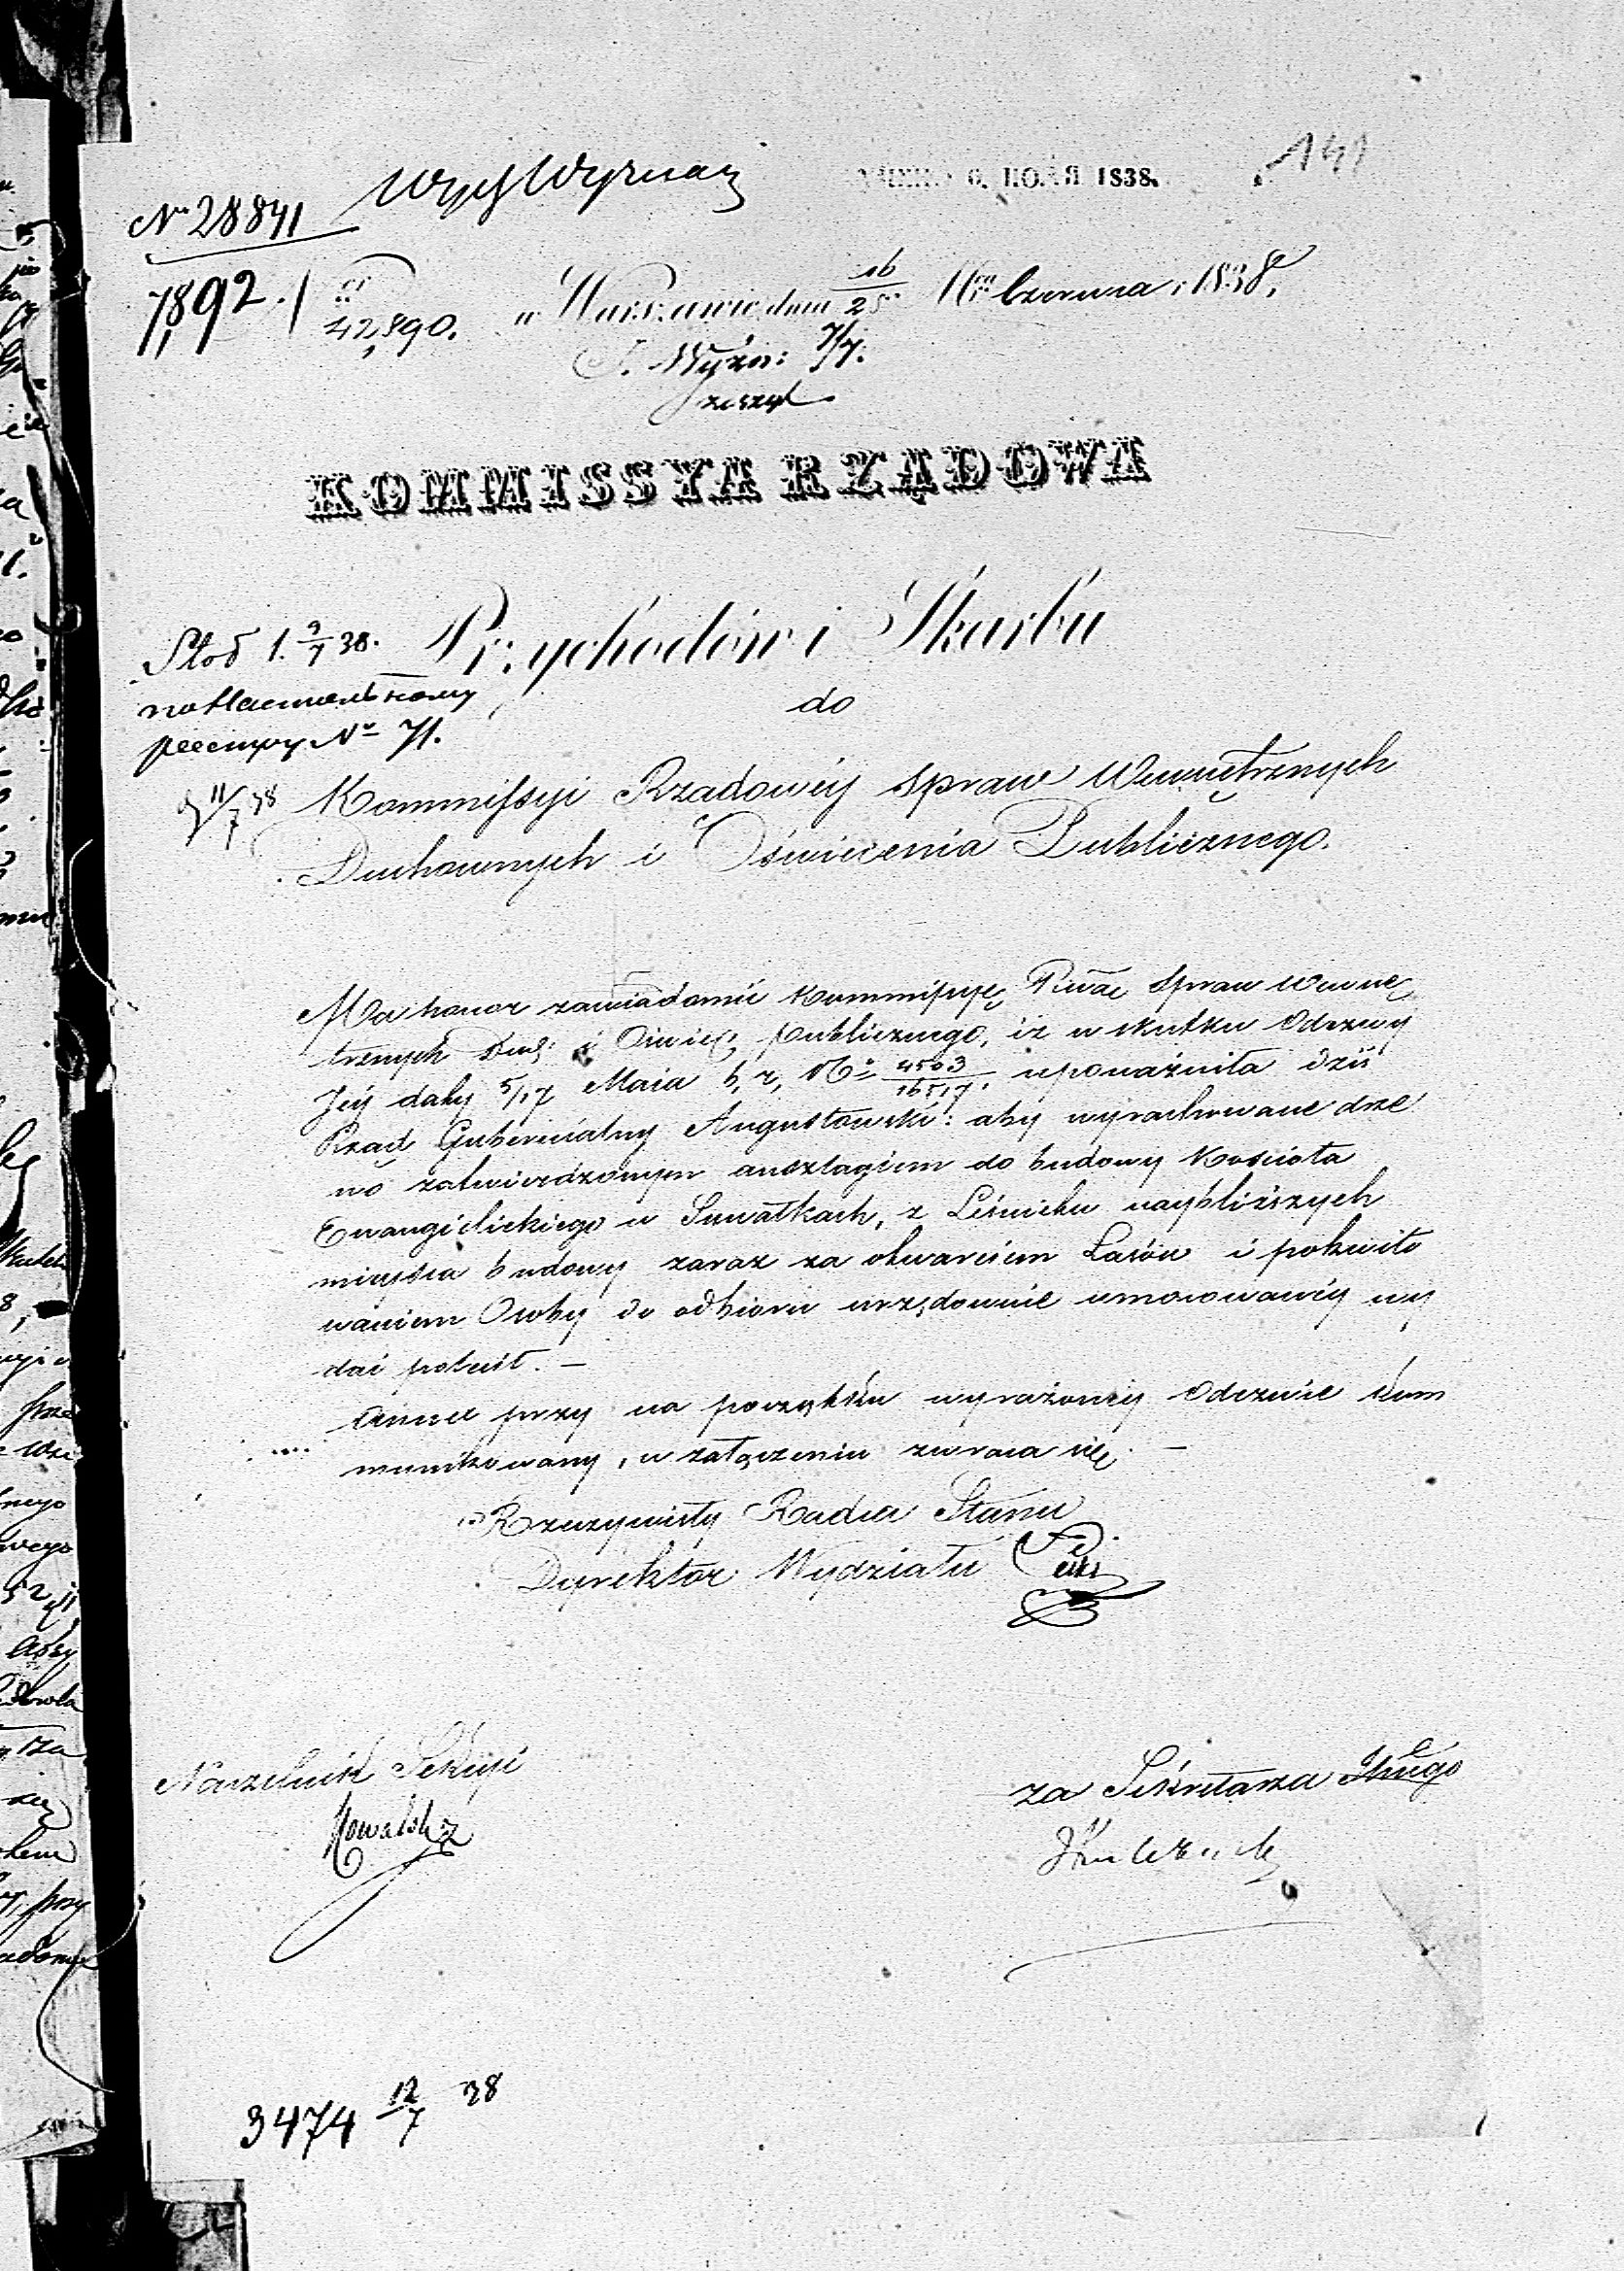 141
6. ІЮЛЯ 1838.
Wyż Wyznań
No 28841
7,892.
42,890.
w Warszawie dnia 16/28 Czerwca 1838
Wyzn: 7/7.
zeszyt
KOMMISSYA RZĄDOWA
Przychodów i Skarbu
do
9/7 38.
No 71.
11/7 38
Kommissyi Rządowéy Spraw Wewnętrznych
Duchownych i Oświecenia Publicznego.
Ma honor zawiadomić Kommissyę Rwą Spraw Wewnę
trznych Duch: i Oświec: Publicznego, iż w skutku Odezwy
Jéy daty 5/17 Maia b, r, No 4503/16517. upoważniła dziś
Rząd Gubernialny Augustowski: aby wyrachowane drze
wo zatwierdzonym anszlagiem do budowy Kościoła
Ewangielickiego w Suwałkach, z Leśnictw naybliższych
mieysca budowy zaraz za otwarciem Lasów i pokwito
waniem Osoby do odbioru urzędownie umocowanéy wy
dać polecił. —
Annex przy na początku wyrażonéy Odezwie kom
munikowany, w załączeniu zwraca się. —
Rzeczywisty Radca Stanu
Dyrektor Wydziału
Naczelnik Sekcyi
Kowalski
za Sekretarza Jlnego
3474 12/7 38